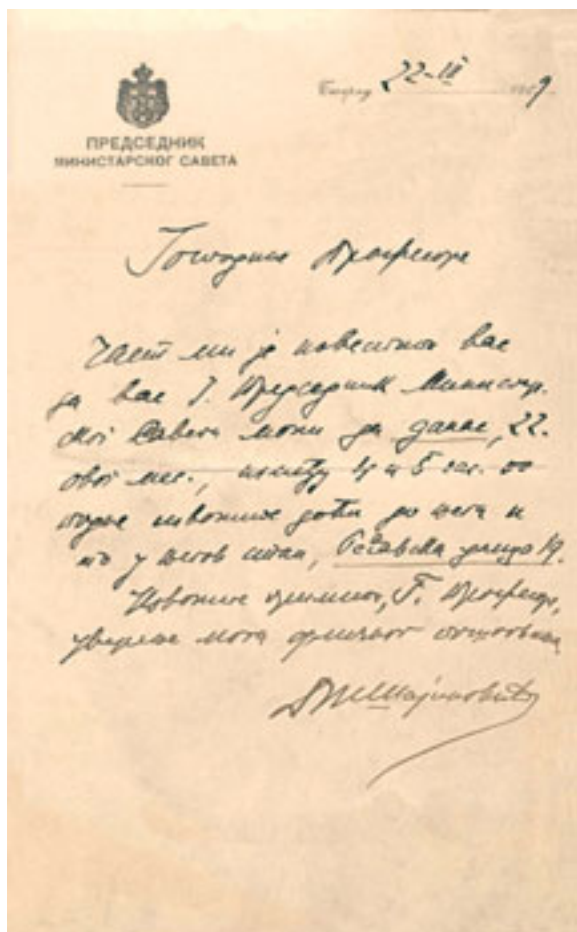 ПРЕДСЕДНИК
МИНИСТАРСКОГ САВЕТА
Београд 22-III 1909
Господине Професоре
Част ми је известити вас
да вас Г. Председник Министар.
ског Савета моли да данас, 22.
овог мес., између 4 и 5 час. по
подне изволите доћи до њега и
то у његов стан, Ресавска улица 19.
Изволите примити, Г. Професоре,
уверење мога одличног поштовања